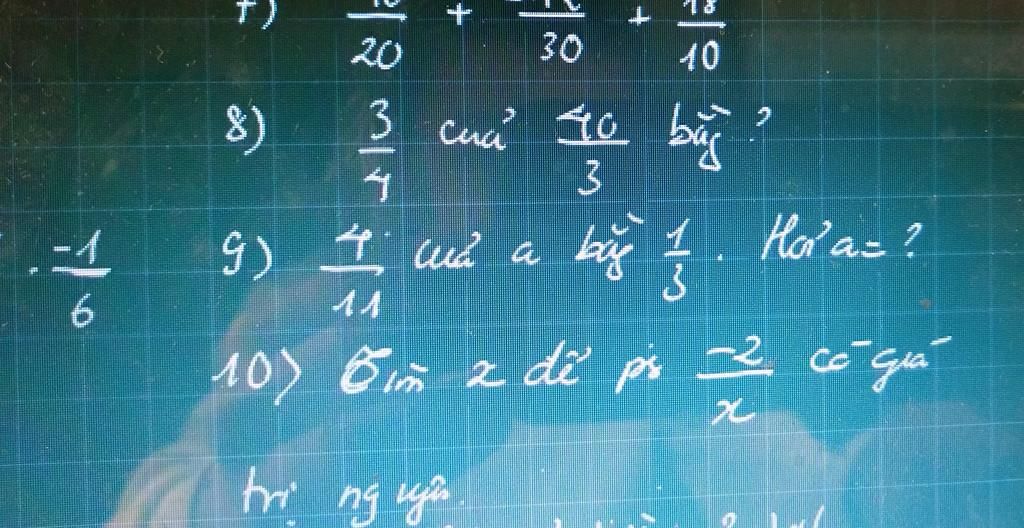 7) /20 + /30 + 18/10
8) 3/4 của 40/3 bằng ?
. -1/6
9) 4/11 của a bằng 1/3 . Hỏi a = ?
10) Tìm x để ps -2/x có giá
trị nguyên.